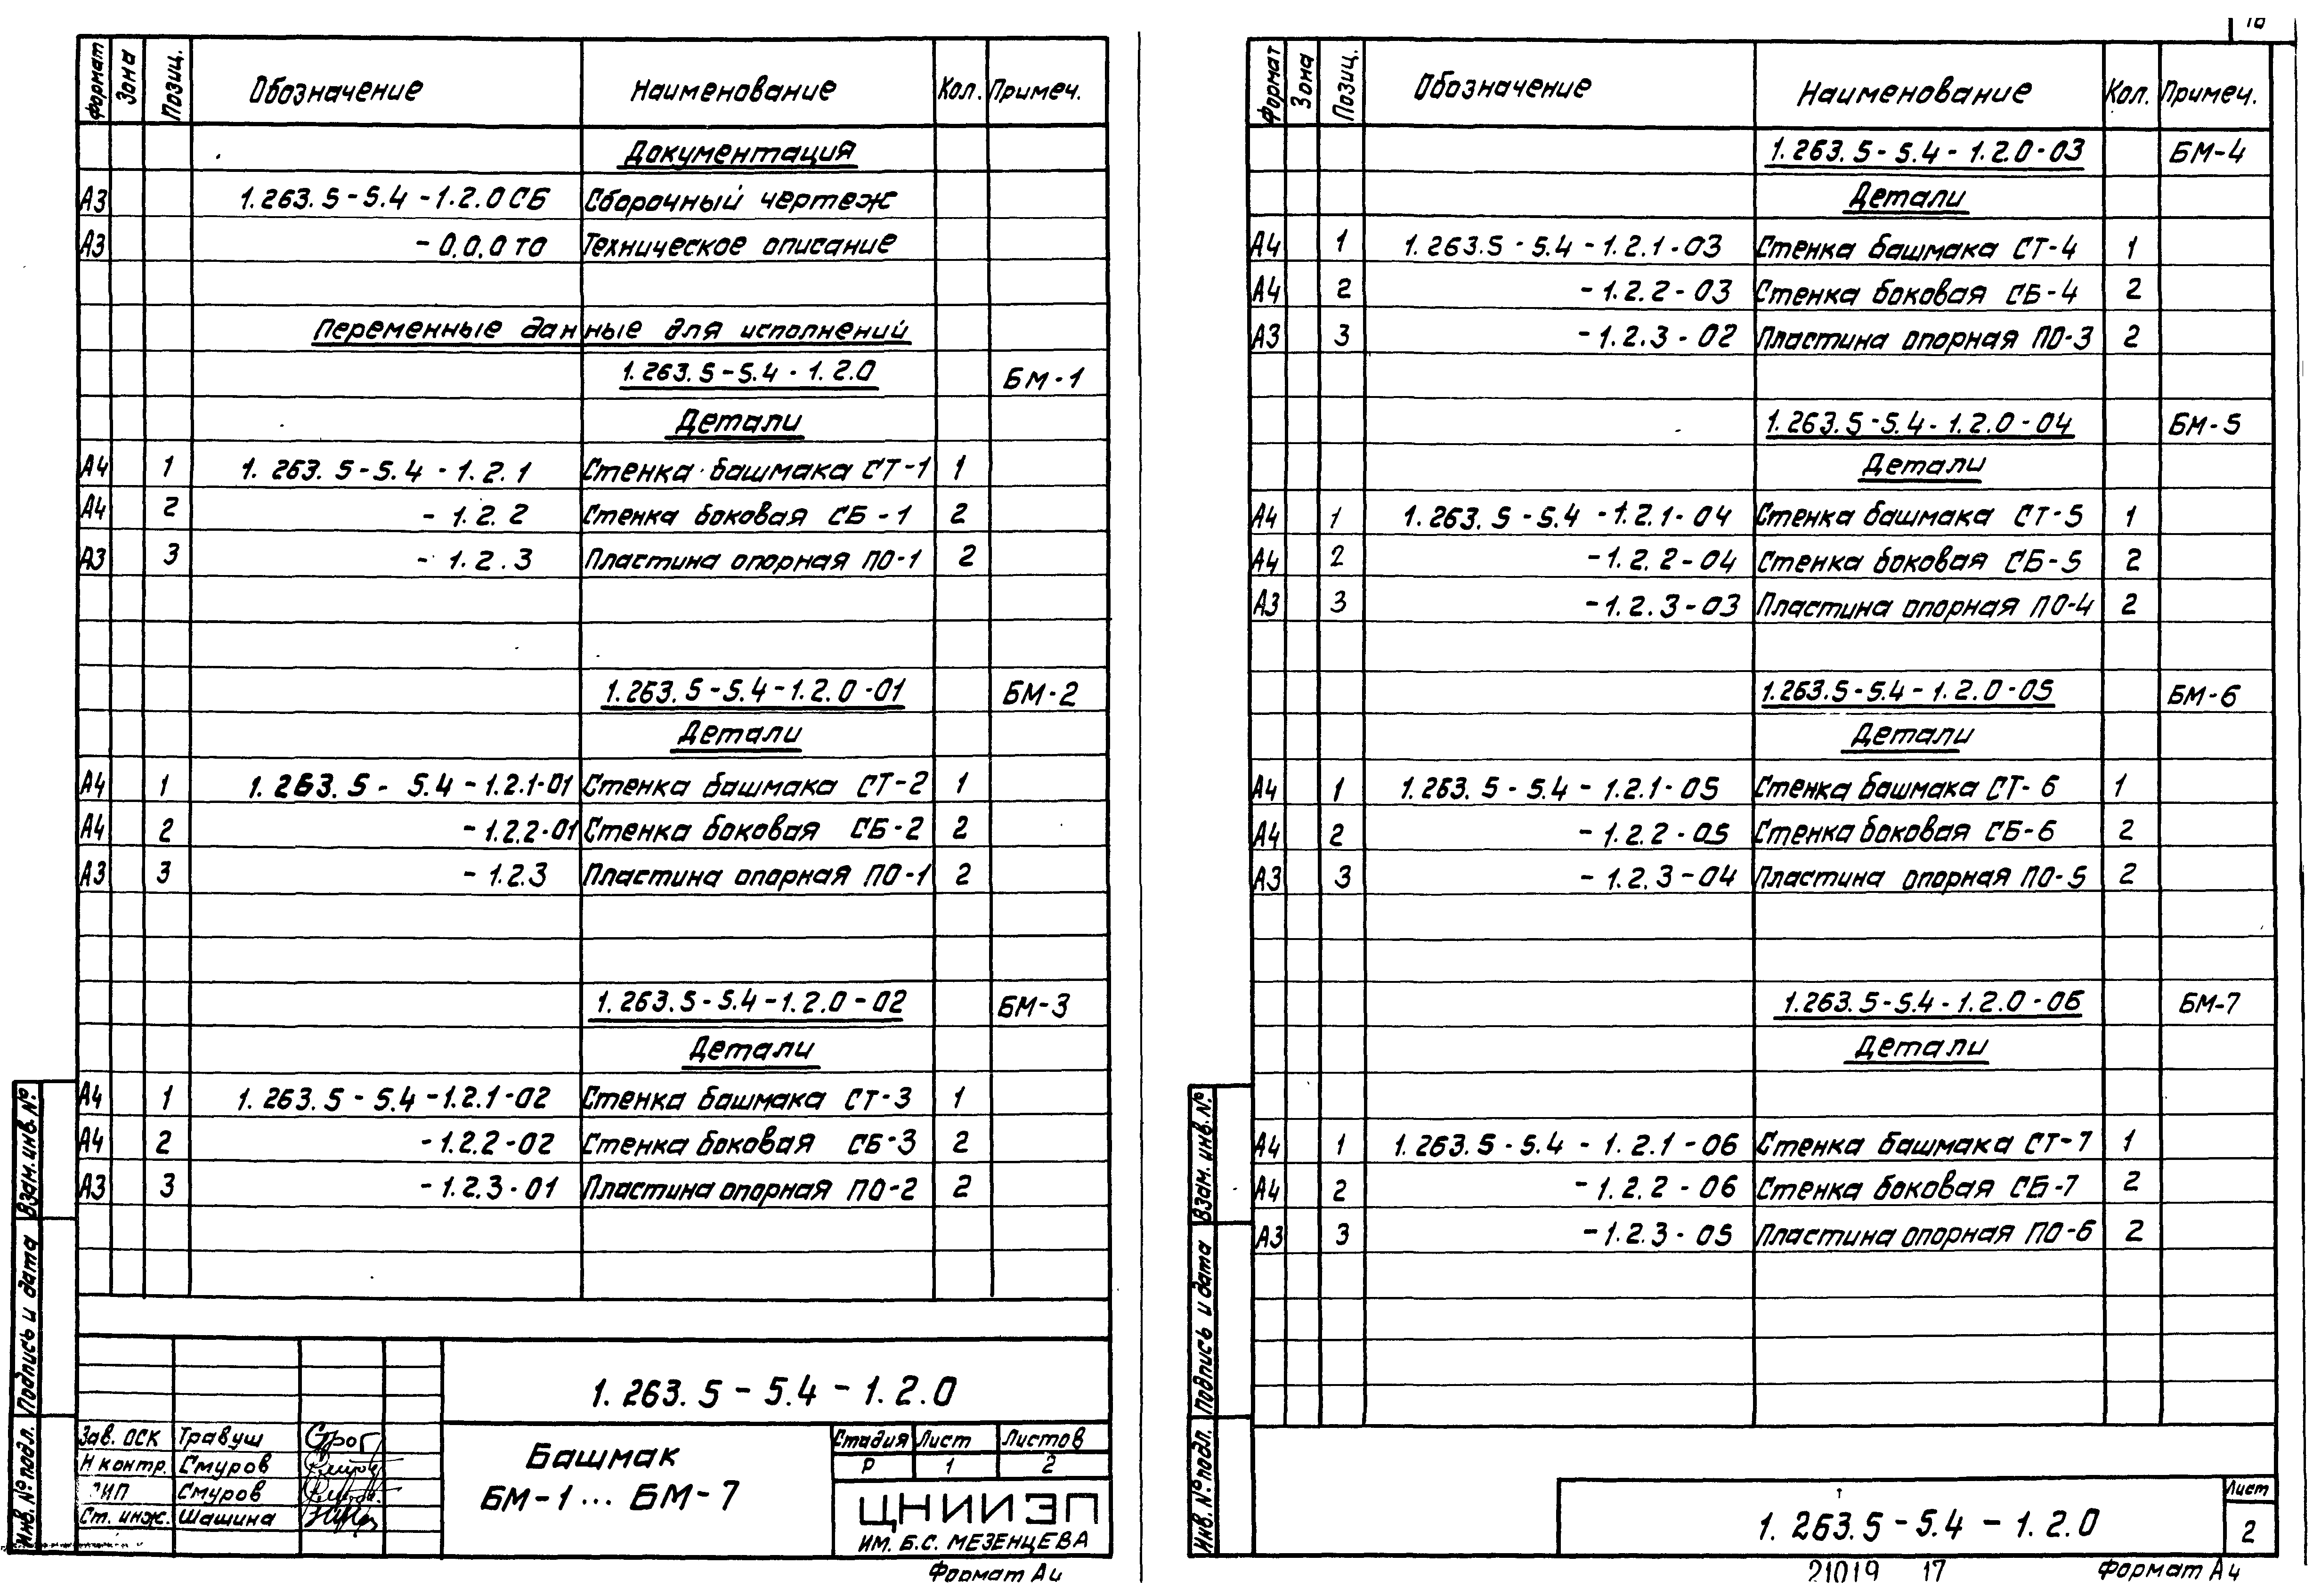 Формат Зона Позиц. Обозначение Наименование Кол. Примеч.
Документация
А3 1.263.5-5.4-1.2.0 СБ Сборочный чертеж
А3 -0.0.0 ТО Техническое описание
Переменные данные для исполнений
1.263.5-5.4-1.2.0 БМ-1
Детали
А4 1 1.263.5-5.4-1.2.1 Стенка башмака СТ-1 1
А4 2 -1.2.2 Стенка боковая СБ-1 2
А3 3 -1.2.3 Пластина опорная ПО-1 2
1.263.5-5.4-1.2.0-01 БМ-2
Детали
А4 1 1.263.5-5.4-1.2.1-01 Стенка башмака СТ-2 1
А4 2 -1.2.2-01 Стенка боковая СБ-2 2
А3 3 -1.2.3 Пластина опорная ПО-1 2
1.263.5-5.4-1.2.0-02 БМ-3
Детали
А4 1 1.263.5-5.4-1.2.1-02 Стенка башмака СТ-3 1
А4 2 -1.2.2-02 Стенка боковая СБ-3 2
А3 3 -1.2.3-01 Пластина опорная ПО-2 2
Взам. инв. №
Подпись и дата
Инв. № подл.
1.263.5-5.4-1.2.0
Зав. ОСК Травуш
Н контр. Смуров
ГИП Смуров
Ст. инж. Шашина
Башмак
БМ-1... БМ-7
Стадия Лист Листов
Р 1 2
ЦНИИЭП
ИМ. Б.С. МЕЗЕНЦЕВА
Формат А4
Формат Зона Позиц. Обозначение Наименование Кол. Примеч.
1.263.5-5.4-1.2.0-03 БМ-4
Детали
А4 1 1.263.5-5.4-1.2.1-03 Стенка башмака СТ-4 1
А4 2 -1.2.2-03 Стенка боковая СБ-4 2
А3 3 -1.2.3-02 Пластина опорная ПО-3 2
1.263.5-5.4-1.2.0-04 БМ-5
Детали
А4 1 1.263.5-5.4-1.2.1-04 Стенка башмака СТ-5 1
А4 2 -1.2.2-04 Стенка боковая СБ-5 2
А3 3 -1.2.3-03 Пластина опорная ПО-4 2
1.263.5-5.4-1.2.0-05 БМ-6
Детали
А4 1 1.263.5-5.4-1.2.1-05 Стенка башмака СТ-6 1
А4 2 -1.2.2-05 Стенка боковая СБ-6 2
А3 3 -1.2.3-04 Пластина опорная ПО-5 2
1.263.5-5.4-1.2.0-06 БМ-7
Детали
А4 1 1.263.5-5.4-1.2.1-06 Стенка башмака СТ-7 1
А4 2 -1.2.2-06 Стенка боковая СБ-7 2
А3 3 -1.2.3-05 Пластина опорная ПО-6 2
Взам. инв. №
Подпись и дата
Инв. № подл.
1.263.5-5.4-1.2.0
Лист
2
21019 17 Формат А4